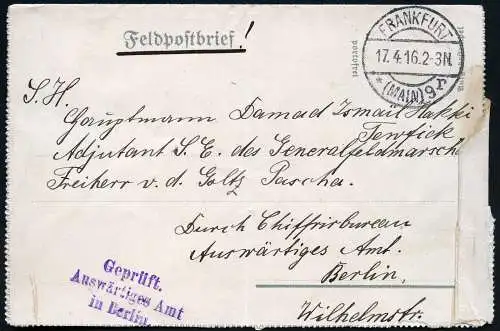 Feldpostbrief!
FRANKFURT
17.4.16.2-3N.
* (MAIN) 9 r
portofrei
S. H.
Hauptmann Damad Ismail Hakki
Tewfick
Adjutant S. E. des Generalfeldmarsch
Freiherr v. d. Goltz Pascha.
Durch Chiffrirbureau
Auswärtiges Amt.
Berlin,
Wilhelmstr.
Geprüft.
Auswärtiges Amt
in Berlin.